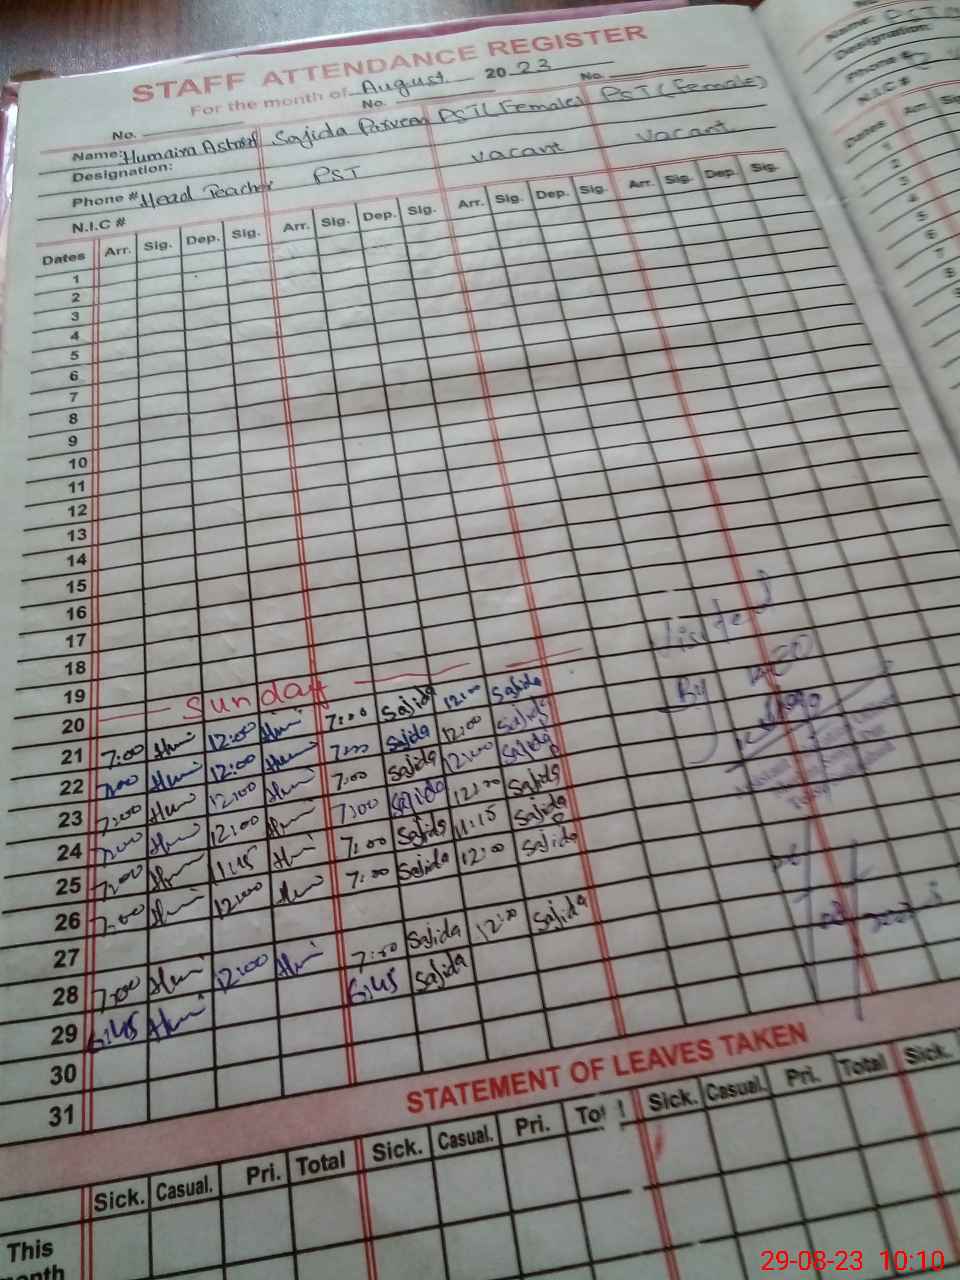 STAFF ATTENDANCE REGISTER
For the month of August 2023
No. No. No.
Name: Humaira Ashraf Sajida Parveen PST (Females) PST (Female)
Designation: Head Teacher PST vacant vacant
Phone #
N.I.C #
Dates Arr. Sig. Dep. Sig. Arr. Sig. Dep. Sig. Arr. Sig. Dep. Sig. Arr. Sig. Dep. Sig.
1
2
3
4
5
6
7
8
9
10
11
12
13
14
15
16
17
18
19
20 Sunday
21 7:00 Hum 12:00 Hum 7:00 Sajida 12:00 Sajida
22 7:00 Hum 12:00 Hum 7:00 Sajida 12:00 Sajida
23 7:00 Hum 12:00 Hum 7:00 Sajida 12:00 Sajida
24 7:00 Hum 12:00 Hum 7:00 Sajida 12:00 Sajida
25 7:00 Hum 11:45 Hum 7:00 Sajida 11:15 Sajida
26 7:00 Hum 12:00 Hum 7:00 Sajida 12:00 Sajida
27
28 7:00 Hum 12:00 Hum 7:00 Sajida 12:00 Sajida
29 6:45 Hum 6:45 Sajida
30
31
Visited
By
STATEMENT OF LEAVES TAKEN
Sick. Casual. Pri. Total Sick. Casual. Pri. Sick. Casual. Pri. Total Sick.
This
29-08-23 10:10